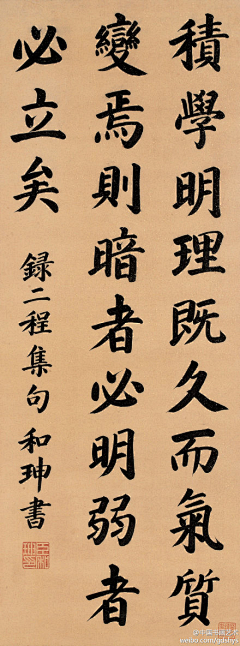 積學明理既久而氣質
變焉則暗者必明弱者
必立矣
録二程集句 和珅書
@中国书画艺术
weibo.com/gdshys